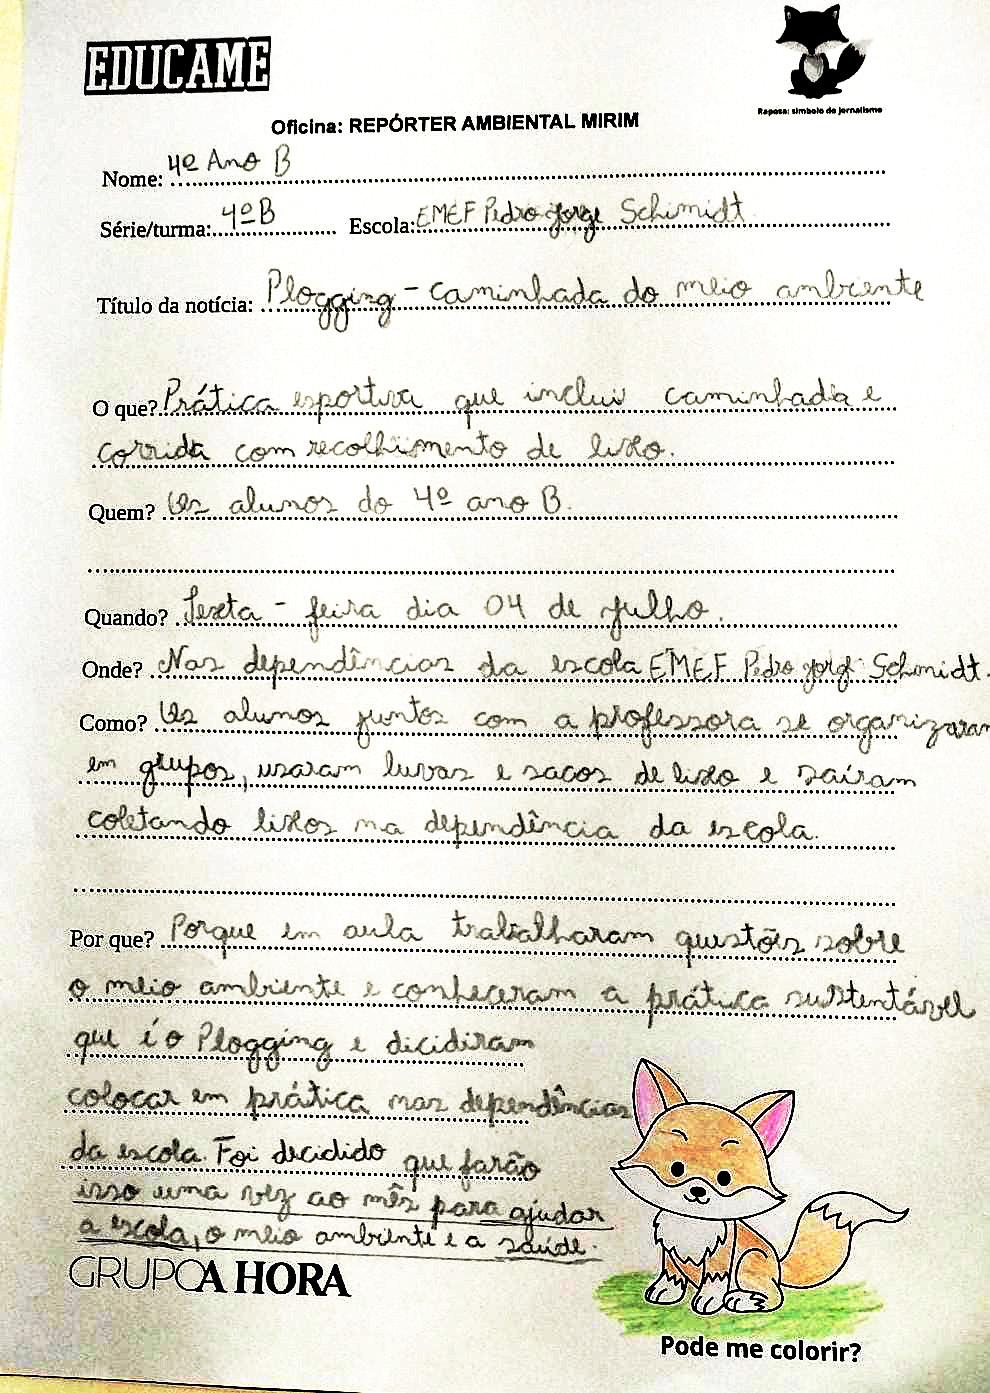 EDUCAME
Raposa: símbolo do jornalismo
Oficina: REPÓRTER AMBIENTAL MIRIM
Nome: 4º Ano B
Série/turma: 4ºB Escola: EMEF Pedro Jorge Schimidt
Título da notícia: Plogging - caminhada do meio ambiente
O que? Prática esportiva que inclui caminhada e
corrida com recolhimento de lixo.
Quem? Os alunos do 4º ano B.
Quando? Sexta-feira dia 04 de julho.
Onde? Nas dependências da escola EMEF Pedro Jorge Schmidt.
Como? Os alunos juntos com a professora se organizaram
em grupos, usaram luvas e sacos de lixo e saíram
coletando lixos na dependência da escola.
Por que? Porque em aula trabalharam questões sobre
o meio ambiente e conheceram a prática sustentável
que é o Plogging e decidiram
colocar em prática nas dependências
da escola. Foi decidido que farão
isso uma vez ao mês para ajudar
a escola, o meio ambiente e a saúde.
GRUPO A HORA
Pode me colorir?